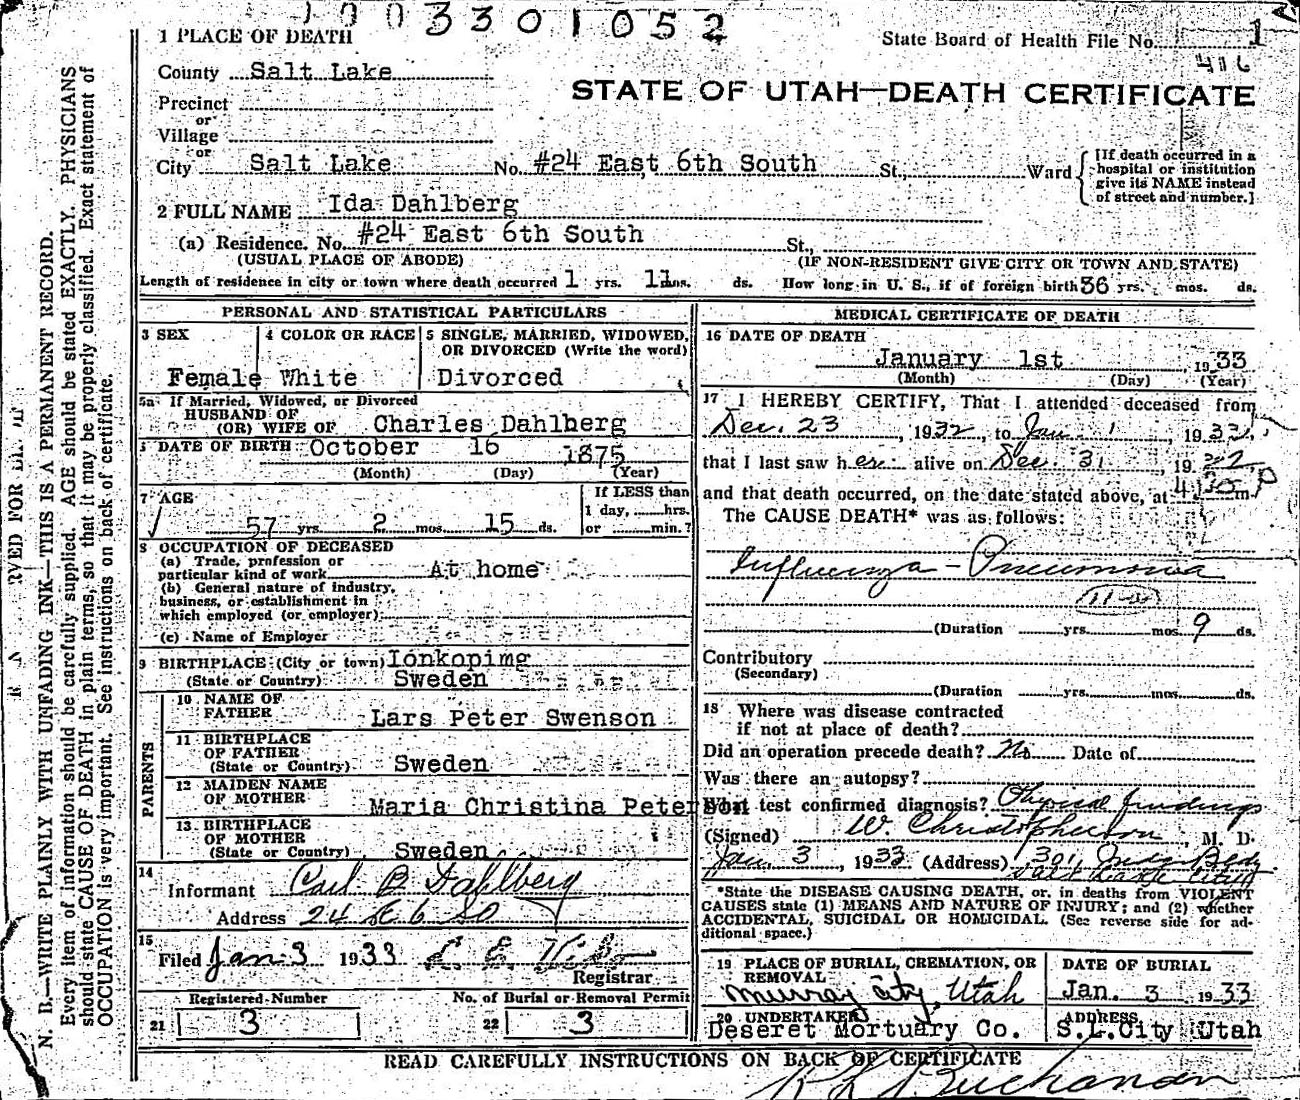 1003301052
1 PLACE OF DEATH
State Board of Health File No. 1
416
County Salt Lake
STATE OF UTAH—DEATH CERTIFICATE
Precinct
or
Village
or
City Salt Lake No. #24 East 6th South St., Ward
[If death occurred in a hospital or institution give its NAME instead of street and number.]
2 FULL NAME Ida Dahlberg
(a) Residence. No. #24 East 6th South St.,
(USUAL PLACE OF ABODE) (IF NON-RESIDENT GIVE CITY OR TOWN AND STATE)
Length of residence in city or town where death occurred 1 yrs. 11 mos. ds. How long in U. S., if of foreign birth 36 yrs. mos. ds.
PERSONAL AND STATISTICAL PARTICULARS
3 SEX
Female
4 COLOR OR RACE
White
5 SINGLE, MARRIED, WIDOWED,
OR DIVORCED (Write the word)
Divorced
5a If Married, Widowed, or Divorced
HUSBAND OF
(OR) WIFE OF Charles Dahlberg
DATE OF BIRTH October 16 1875
(Month) (Day) (Year)
7 AGE
57 yrs. 2 mos. 15 ds.
If LESS than
1 day, hrs.
or min.?
8 OCCUPATION OF DECEASED
(a) Trade, profession or
particular kind of work At home
(b) General nature of industry,
business, or establishment in
which employed (or employer)
(c) Name of Employer
9 BIRTHPLACE (City or town) Ionkoping
(State or Country) Sweden
PARENTS
10 NAME OF
FATHER Lars Peter Swenson
11 BIRTHPLACE
OF FATHER
(State or Country) Sweden
12 MAIDEN NAME
OF MOTHER Maria Christina Peterson
13 BIRTHPLACE
OF MOTHER
(State or Country) Sweden
14
Informant Carl B Dahlberg
Address 24 E. 6. SO
15
Filed Jan 3 1933
Registrar
Registered Number
21 3
No. of Burial or Removal Permit
22 3
MEDICAL CERTIFICATE OF DEATH
16 DATE OF DEATH
January 1st 1933
(Month) (Day) (Year)
17 I HEREBY CERTIFY, That I attended deceased from
Dec. 23, 1932, to Jan 1 1933,
that I last saw her alive on Dec 31, 19
and that death occurred, on the date stated above, at 4:30 P m.
The CAUSE DEATH* was as follows:
Influenza - Pneumonia
(Duration yrs. mos. 9 ds.
Contributory
(Secondary)
(Duration yrs. mos. ds.
18 Where was disease contracted
if not at place of death?
Did an operation precede death? No Date of
Was there an autopsy?
What test confirmed diagnosis? Physical findings
(Signed) W. Christopherson, M. D.
Jan. 3, 1933 (Address) 301 Bldg
Salt Lake City
*State the DISEASE CAUSING DEATH, or, in deaths from VIOLENT
CAUSES state (1) MEANS AND NATURE OF INJURY; and (2) whether
ACCIDENTAL, SUICIDAL OR HOMICIDAL. (See reverse side for ad-
ditional space.)
19 PLACE OF BURIAL, CREMATION, OR
REMOVAL
Murray City, Utah
DATE OF BURIAL
Jan. 3 1933
20 UNDERTAKER
Deseret Mortuary Co.
ADDRESS
S.L.City Utah
READ CAREFULLY INSTRUCTIONS ON BACK OF CERTIFICATE
Buchanan
N. B.—WRITE PLAINLY WITH UNFADING INK—THIS IS A PERMANENT RECORD.
Every item of information should be carefully supplied. AGE should be stated EXACTLY. PHYSICIANS
should state CAUSE OF DEATH in plain terms, so that it may be properly classified. Exact statement of
OCCUPATION is very important. See instructions on back of certificate.